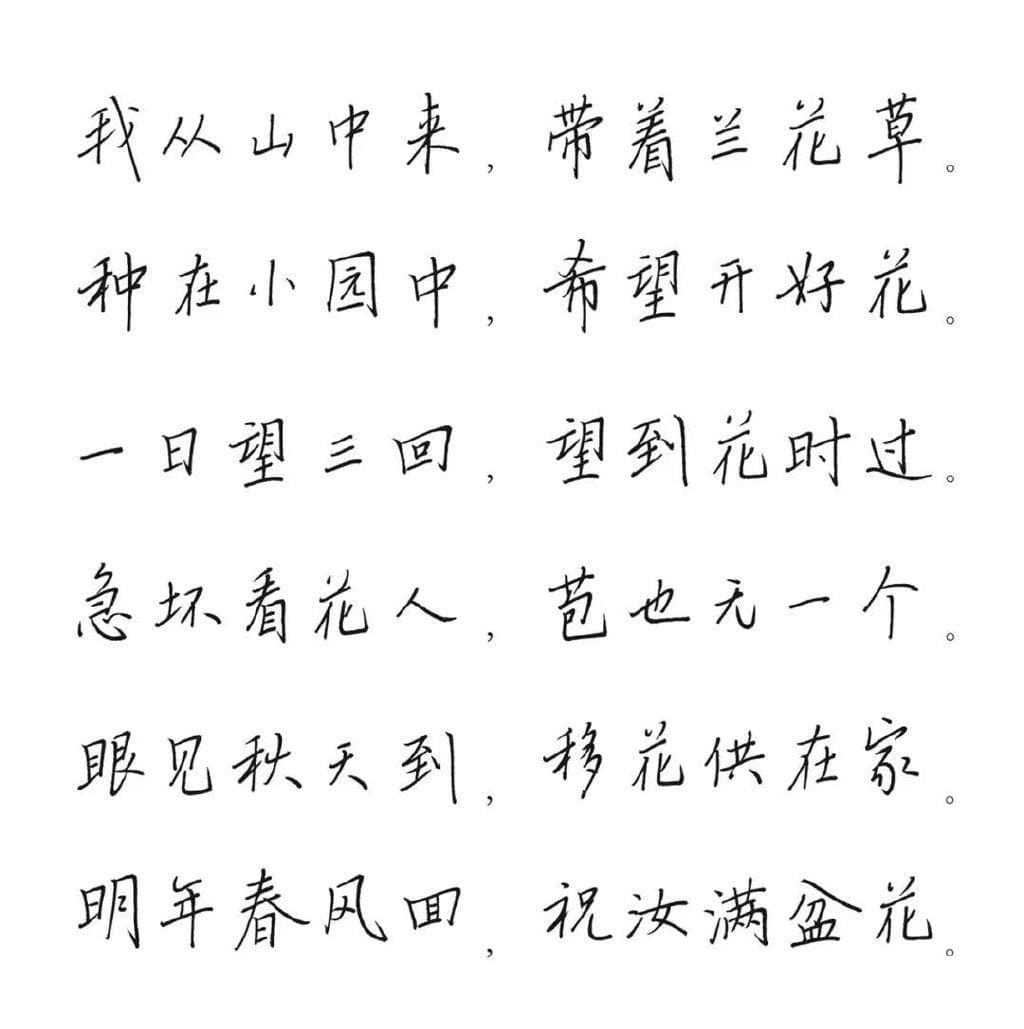 我从山中来，带着兰花草。
种在小园中，希望开好花。
一日望三回，望到花时过。
急坏看花人，苞也无一个。
眼见秋天到，移花供在家。
明年春风回，祝汝满盆花。